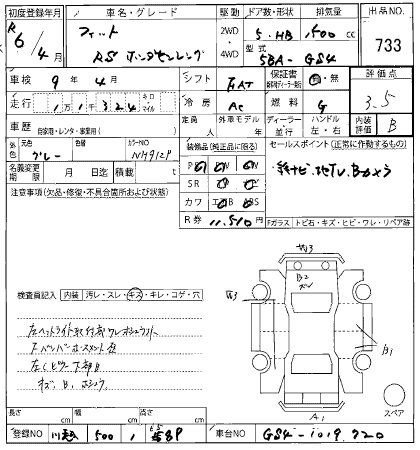 初度登録年月 車名・グレード 駆動 ドア数・形状 排気量 出品NO.
R6/4月 フィット RS ホンダセンシング 2WD 4WD 5・HB 1,500cc 733
型式 5BA-GS4
車検 9年4月 シフト FAT 保証書 有・無 評価点 3.5
走行 1万1千324 キロ・マイル 冷房 AC 燃料 G
車歴 自家用・レンタ・事業用( ) 定員 人 外車モデル 年 ディーラー・並行 ハンドル 左・右 内装評価 B
外色 元色 グレー 色替 カラーNO NH912P 装備品(純正品に限る) セールスポイント(正常に作動するもの)
名義変更期限 月 日迄 積載 t PS AW ナビ、地TV、Bカメラ
注意事項(欠品・修復・不具合箇所および状態) SR
カワ
R券 11,510円 Fガラス トビ石・キズ・ヒビ・ワレ・リペア跡
W3
B2
検査員記入 内装 汚レ・スレ・キズ・キレ・コゲ・穴 W3
左ヘットライト取付部
B1
左Cピラー下部B
キズ、B、
スペア
A1
長さ cm 幅 cm 高さ cm
登録NO 500 車台NO GS4-1019720